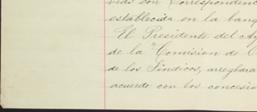 vias con correspondenc
establecida en la banq
El Presidente del Ay
de la "Comision de
de los Síndicos, arreglará
acuerdo con los concesio